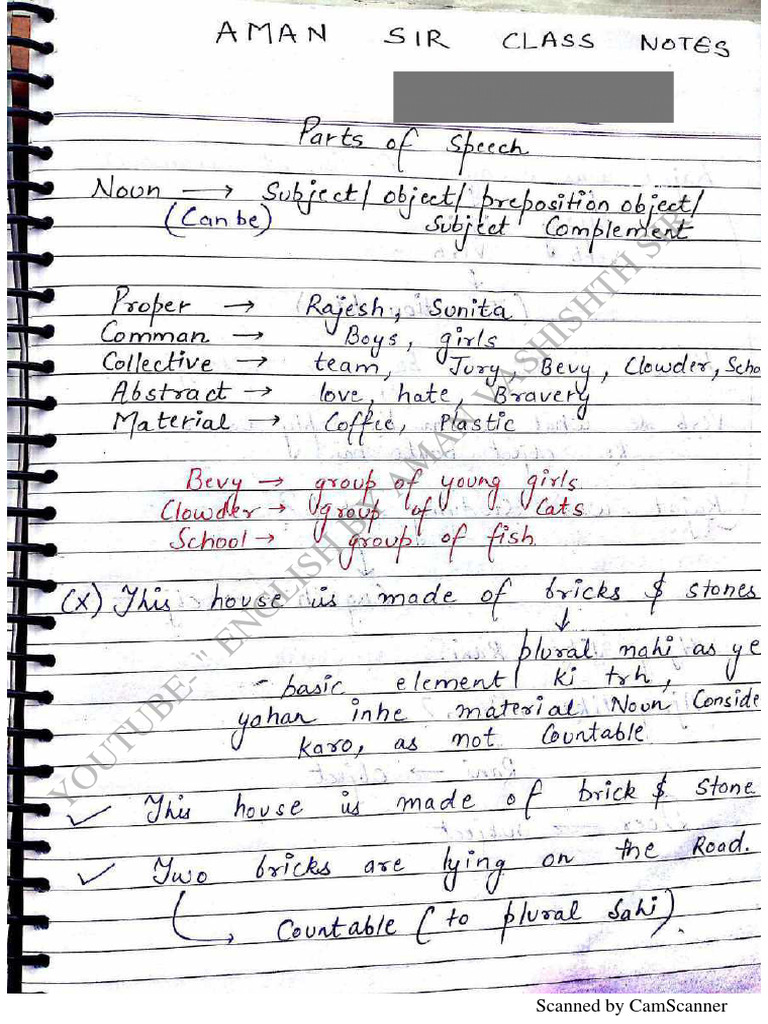 AMAN SIR CLASS NOTES
Parts of Speech
Noun → Subject/ object/ preposition object/
(Can be) Subject Complement
Proper → Rajesh, Sunita
Comman → Boys, girls
Collective → team, Jury Bevy, Clowder, Scho
Abstract → love, hate, Bravery
Material → Coffee, Plastic
Bevy → group of young girls
Clowder → group of Cats
School → group of fish
(x) This house is made of bricks & stones
↓
plural nahi as ye
- basic element ki trh,
yahan inhe material Noun Conside
karo, as not Countable
✓ This house is made of brick & stone
✓ Two bricks are lying on the Road.
→ Countable (to plural sahi).
YOUTUBE-" ENGLISH BY AMAN VASHISHTH SIR
Scanned by CamScanner